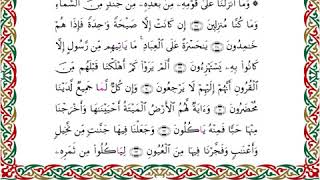 وَمَا أَنزَلْنَا عَلَىٰ قَوْمِهِۦ مِنۢ بَعْدِهِۦ مِن جُندٍ مِّنَ السَّمَآءِ
وَمَا كُنَّا مُنزِلِينَ ۝ إِن كَانَتْ إِلَّا صَيْحَةً وَٰحِدَةً فَإِذَا هُمْ
خَٰمِدُونَ ۝ يَٰحَسْرَةً عَلَى الْعِبَادِ ۚ مَا يَأْتِيهِم مِّن رَّسُولٍ إِلَّا
كَانُوا بِهِۦ يَسْتَهْزِءُونَ ۝ أَلَمْ يَرَوْا كَمْ أَهْلَكْنَا قَبْلَهُم مِّنَ
الْقُرُونِ أَنَّهُمْ إِلَيْهِمْ لَا يَرْجِعُونَ ۝ وَإِن كُلٌّ لَّمَا جَمِيعٌ لَّدَيْنَا
مُحْضَرُونَ ۝ وَءَايَةٌ لَّهُمُ الْأَرْضُ الْمَيْتَةُ أَحْيَيْنَٰهَا وَأَخْرَجْنَا
مِنْهَا حَبًّا فَمِنْهُ يَأْكُلُونَ ۝ وَجَعَلْنَا فِيهَا جَنَّٰتٍ مِّن نَّخِيلٍ
وَأَعْنَٰبٍ وَفَجَّرْنَا فِيهَا مِنَ الْعُيُونِ ۝ لِيَأْكُلُوا مِن ثَمَرِهِۦ